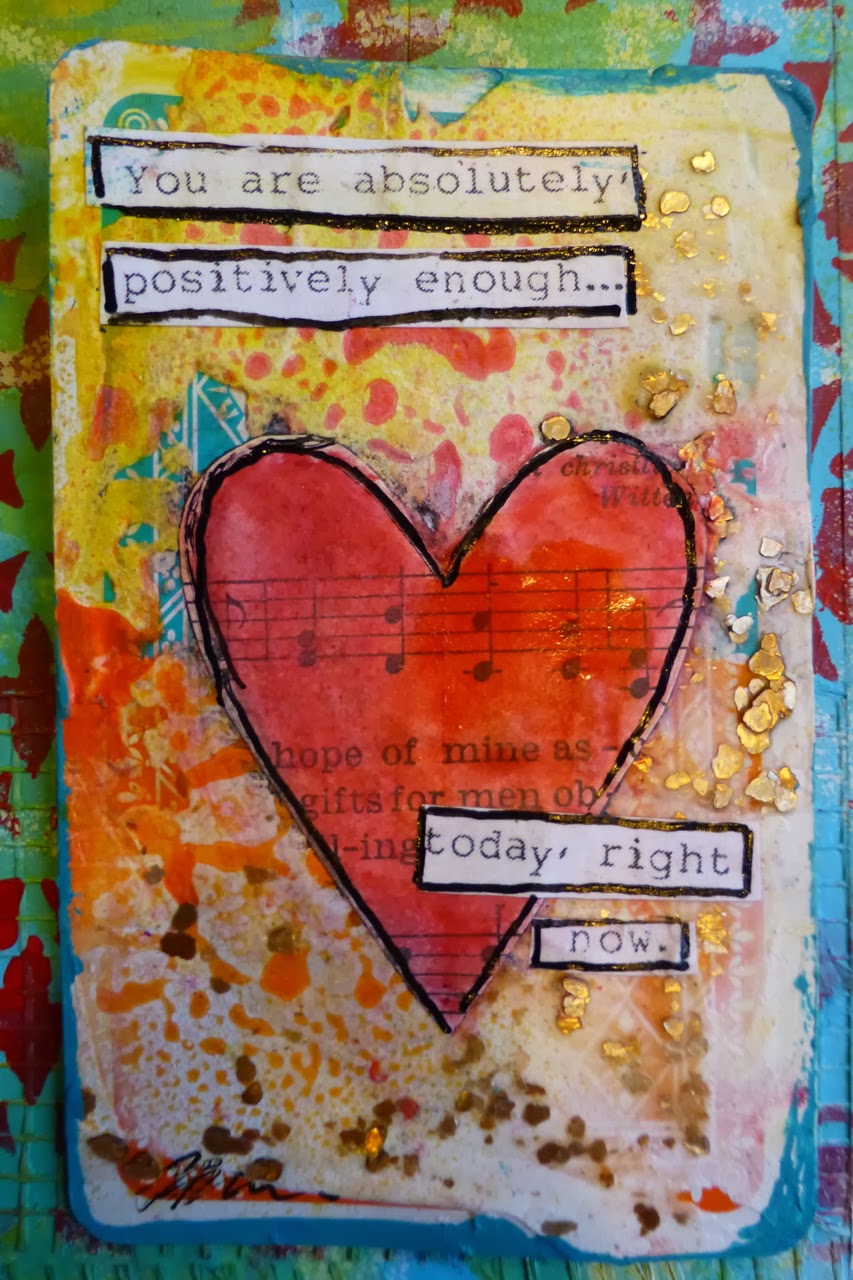 You are absolutely,
positively enough...
christ
Witte
hope of mine as -
gifts for men ob
l-ing
today, right
now.